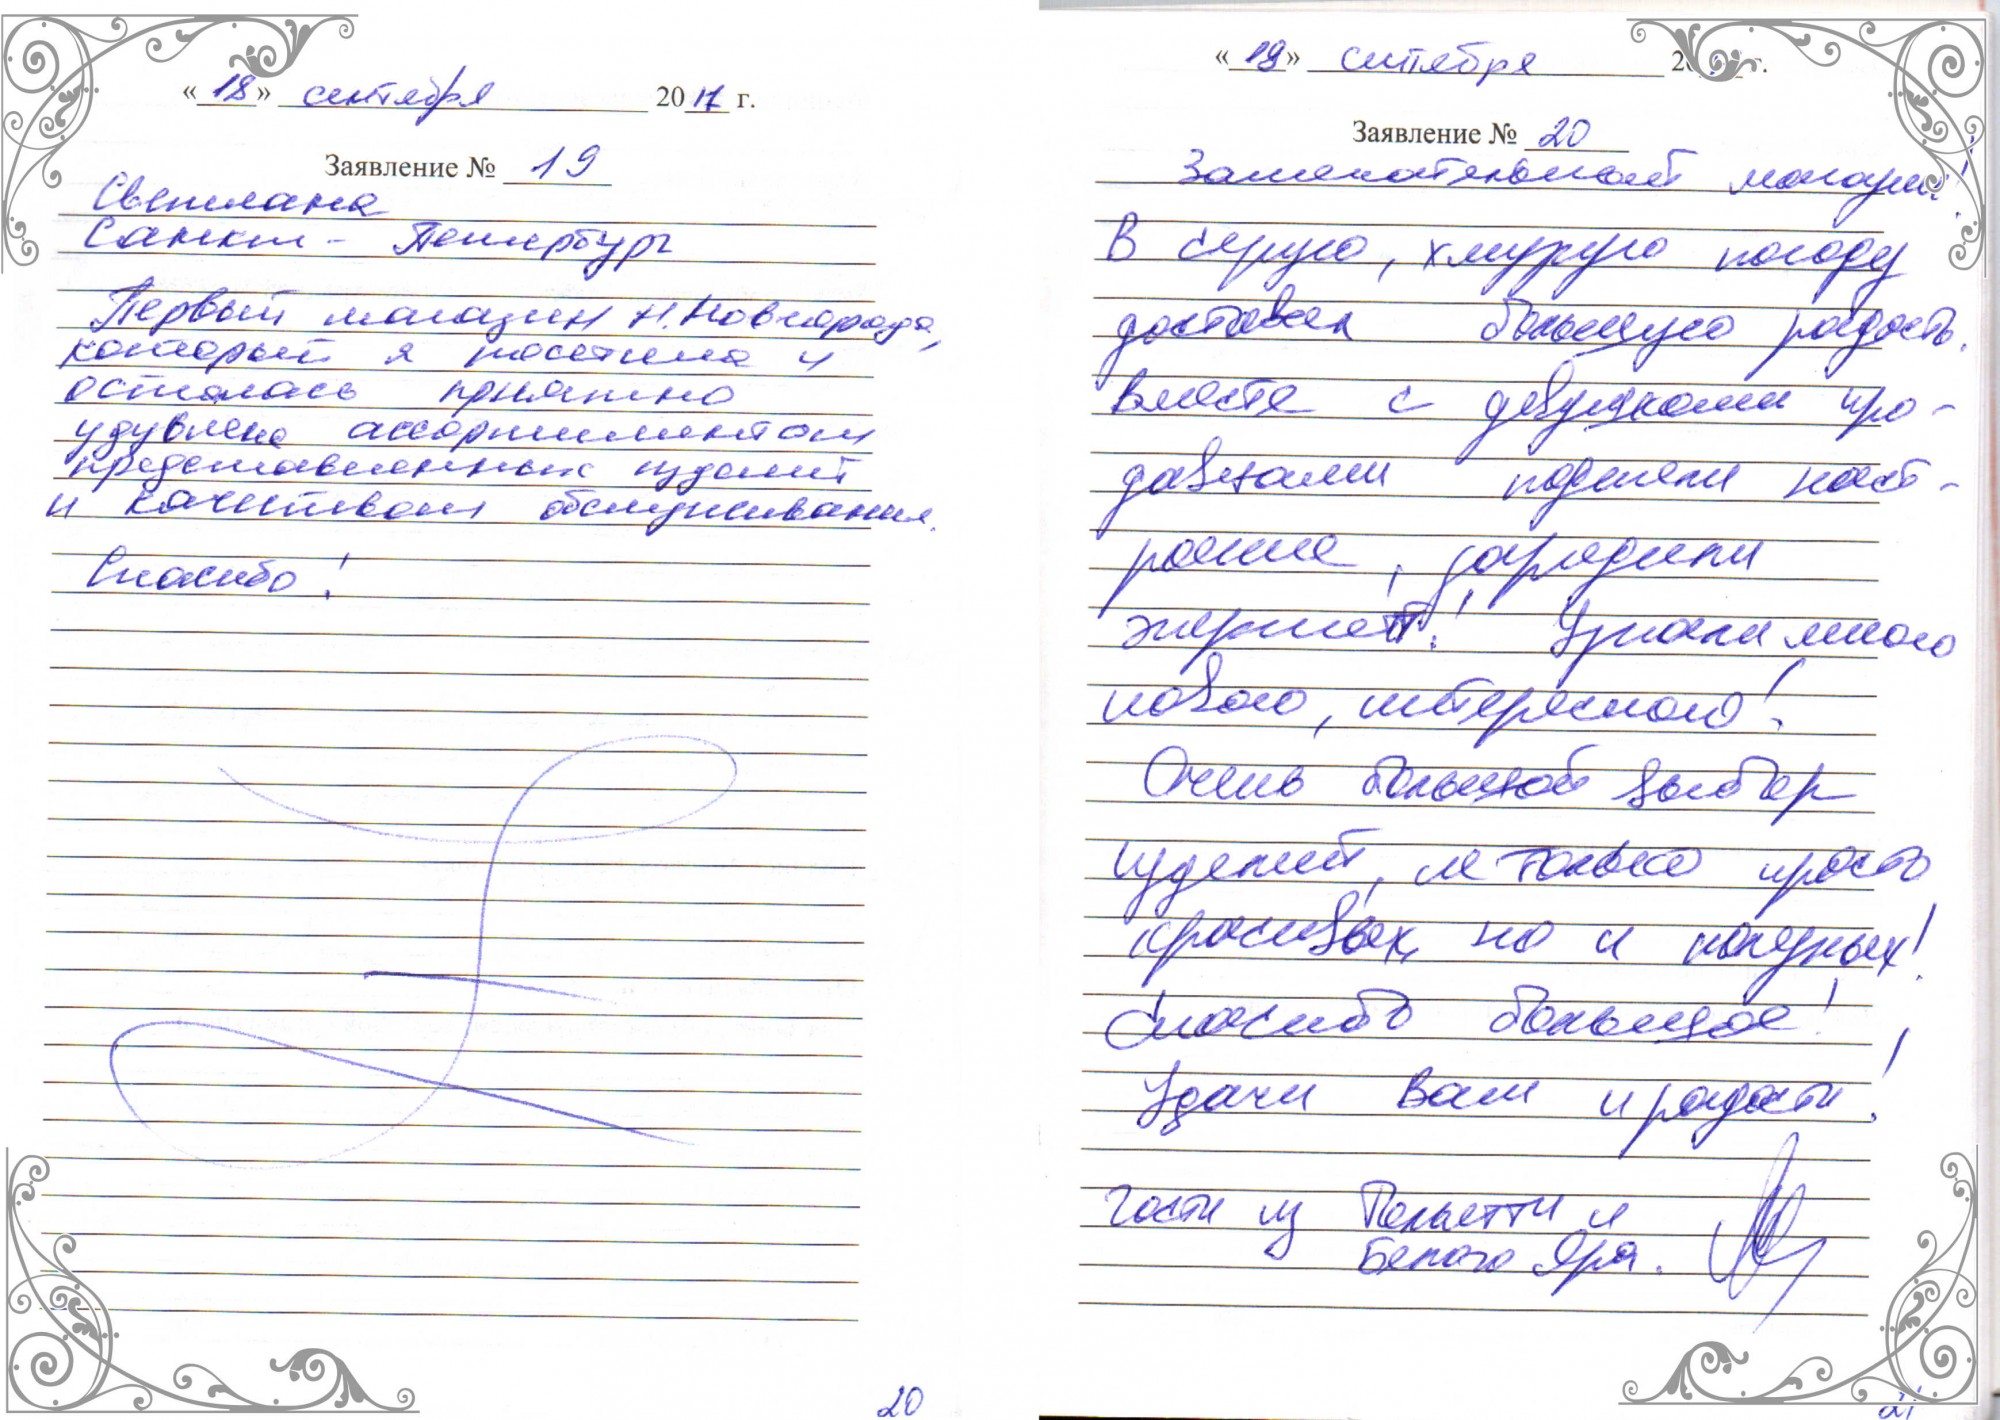 «18» сентября 2017 г.
Заявление № 19
Светлана
Санкт-Петербург
Первый магазин Н.Новгорода,
который я посетила и
осталась приятно
удивлена ассортиментом
представленных изделий
и качеством обслуживания.
Спасибо!
20
«19» сентября 20 г.
Заявление № 20
Замечательный магазин!
В серую, хмурую погоду
доставил большую радость.
Вместе с девушками про-
давцами подняли наст-
роение, зарядили
энергией! Узнали много
нового, интересного!
Очень большой выбор
изделий, не только просто
красивых, но и полезных!
Спасибо большое!
Удачи Вам и радости!
Гости из Тольятти и
Белого Яра.
21